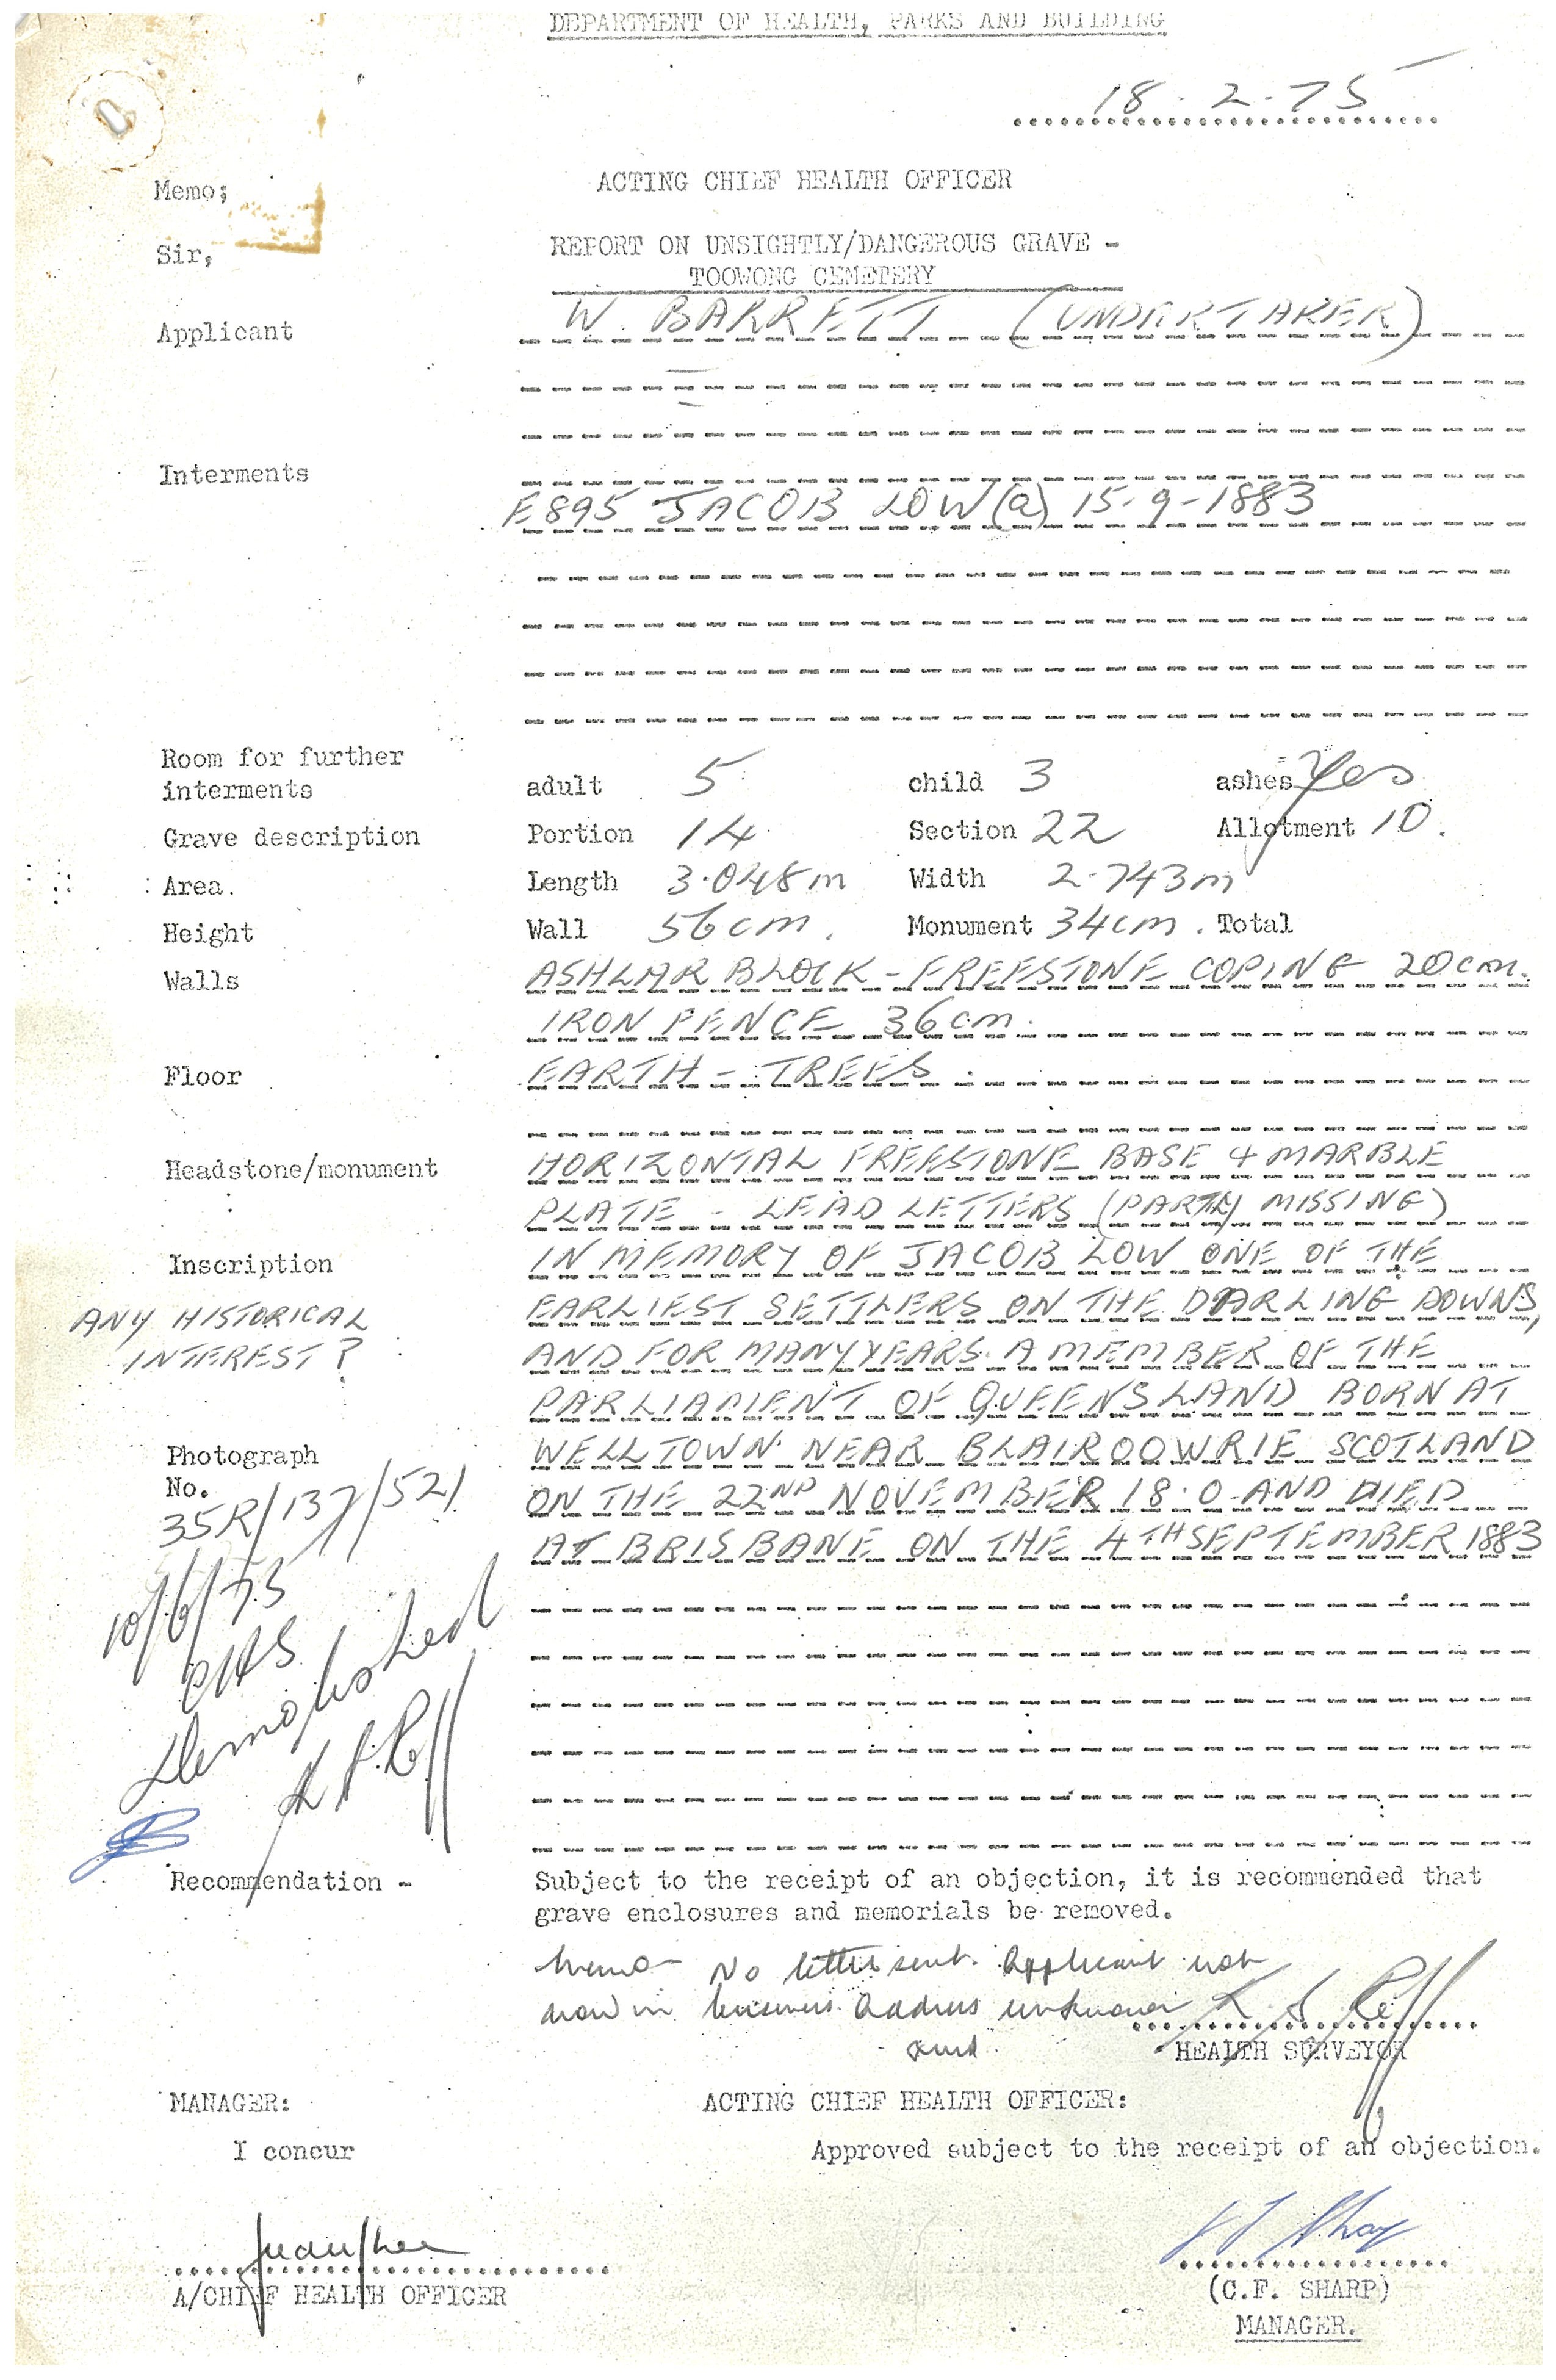 DEPARTMENT OF HEALTH, PARKS AND BUILDING
18-2-75
Memo;
ACTING CHIEF HEALTH OFFICER
Sir,
REPORT ON UNSIGHTLY/DANGEROUS GRAVE -
TOOWONG CEMETERY
Applicant W. BARRETT (UNDERTAKER)
Interments
E895 JACOB LOW (a) 15-9-1883
Room for further
interments adult 5 child 3 ashes Yes
Grave description Portion 14 Section 22 Allotment 10.
Area. Length 3.048m Width 2.743m
Height Wall 56cm. Monument 34cm. Total
Walls ASHLAR BLOCK - FREESTONE COPING 20cm.
IRON FENCE 36cm.
Floor EARTH - TREES.
Headstone/monument HORIZONTAL FREESTONE BASE & MARBLE
PLATE - LEAD LETTERS (PARTLY MISSING)
Inscription IN MEMORY OF JACOB LOW ONE OF THE
EARLIEST SETTLERS ON THE DARLING DOWNS,
ANY HISTORICAL
INTEREST?
AND FOR MANY YEARS A MEMBER OF THE
PARLIAMENT OF QUEENSLAND BORN AT
Photograph
No.
WELLTOWN NEAR BLAIROOWRIE SCOTLAND
35R/137/521
ON THE 22ND NOVEMBER 18.0 AND DIED
AT BRISBANE ON THE 4TH SEPTEMBER 1883
10/6/75
Demolished
Recommendation - Subject to the receipt of an objection, it is recommended that
grave enclosures and memorials be removed.
Memo - No letter sent. Applicant not
now in business. Address unknown
HEALTH SURVEYOR
MANAGER:
ACTING CHIEF HEALTH OFFICER:
I concur
Approved subject to the receipt of an objection.
A/CHIEF HEALTH OFFICER
(C.F. SHARP)
MANAGER.